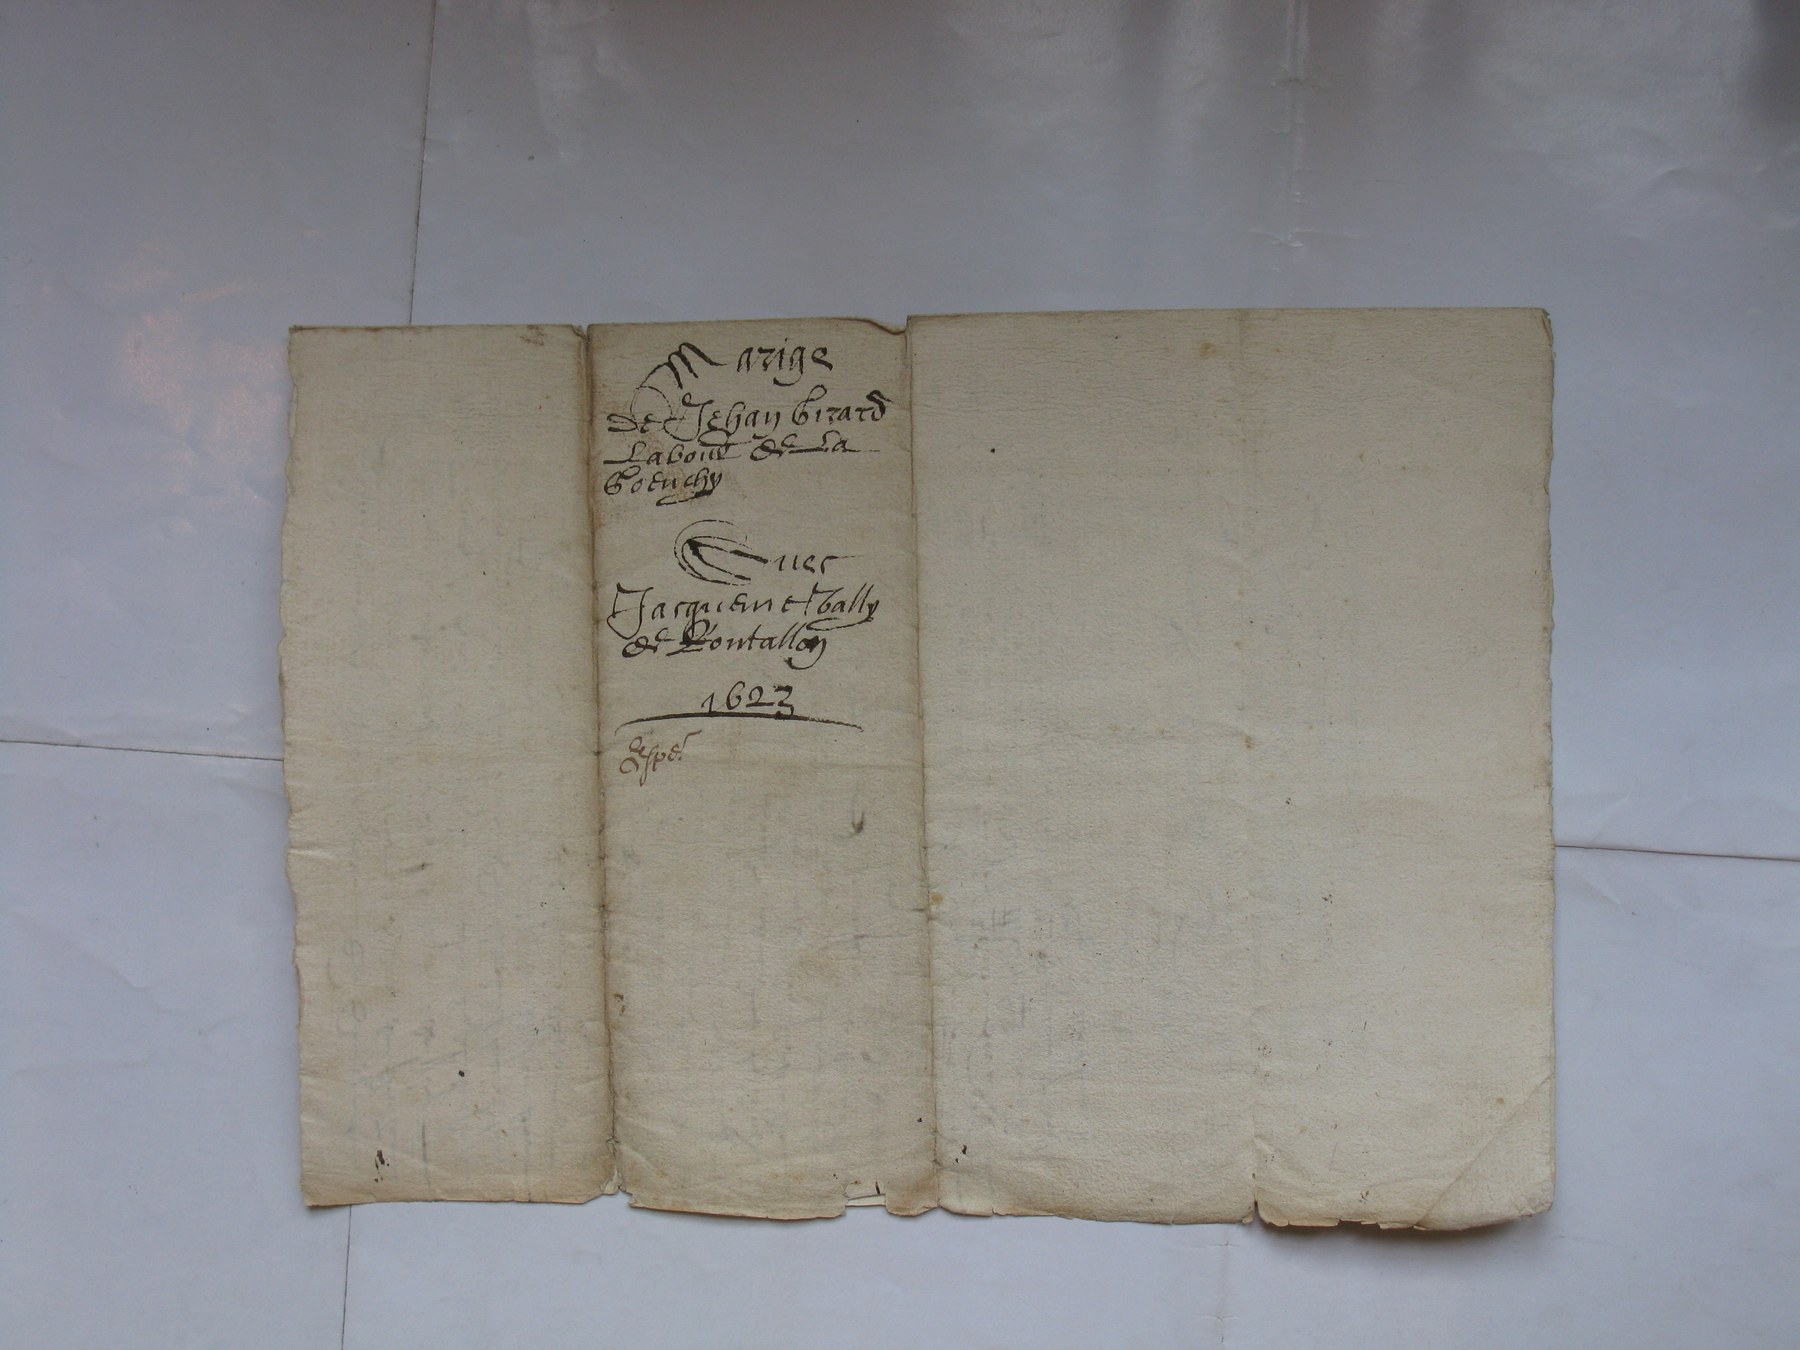 Marige
de Jehan Girard
Labour de La
Goenchy
Avec
Jacqueme Bally
de Rontallon
1623
Expé